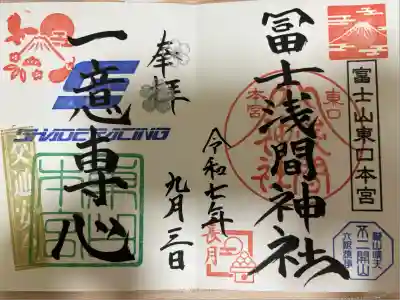 富士山東口本宮
冨士浅間神社
東口
本宮
奉拝
令和七年
九月三日
長月
一意専心
SHADE RACING
不二開山